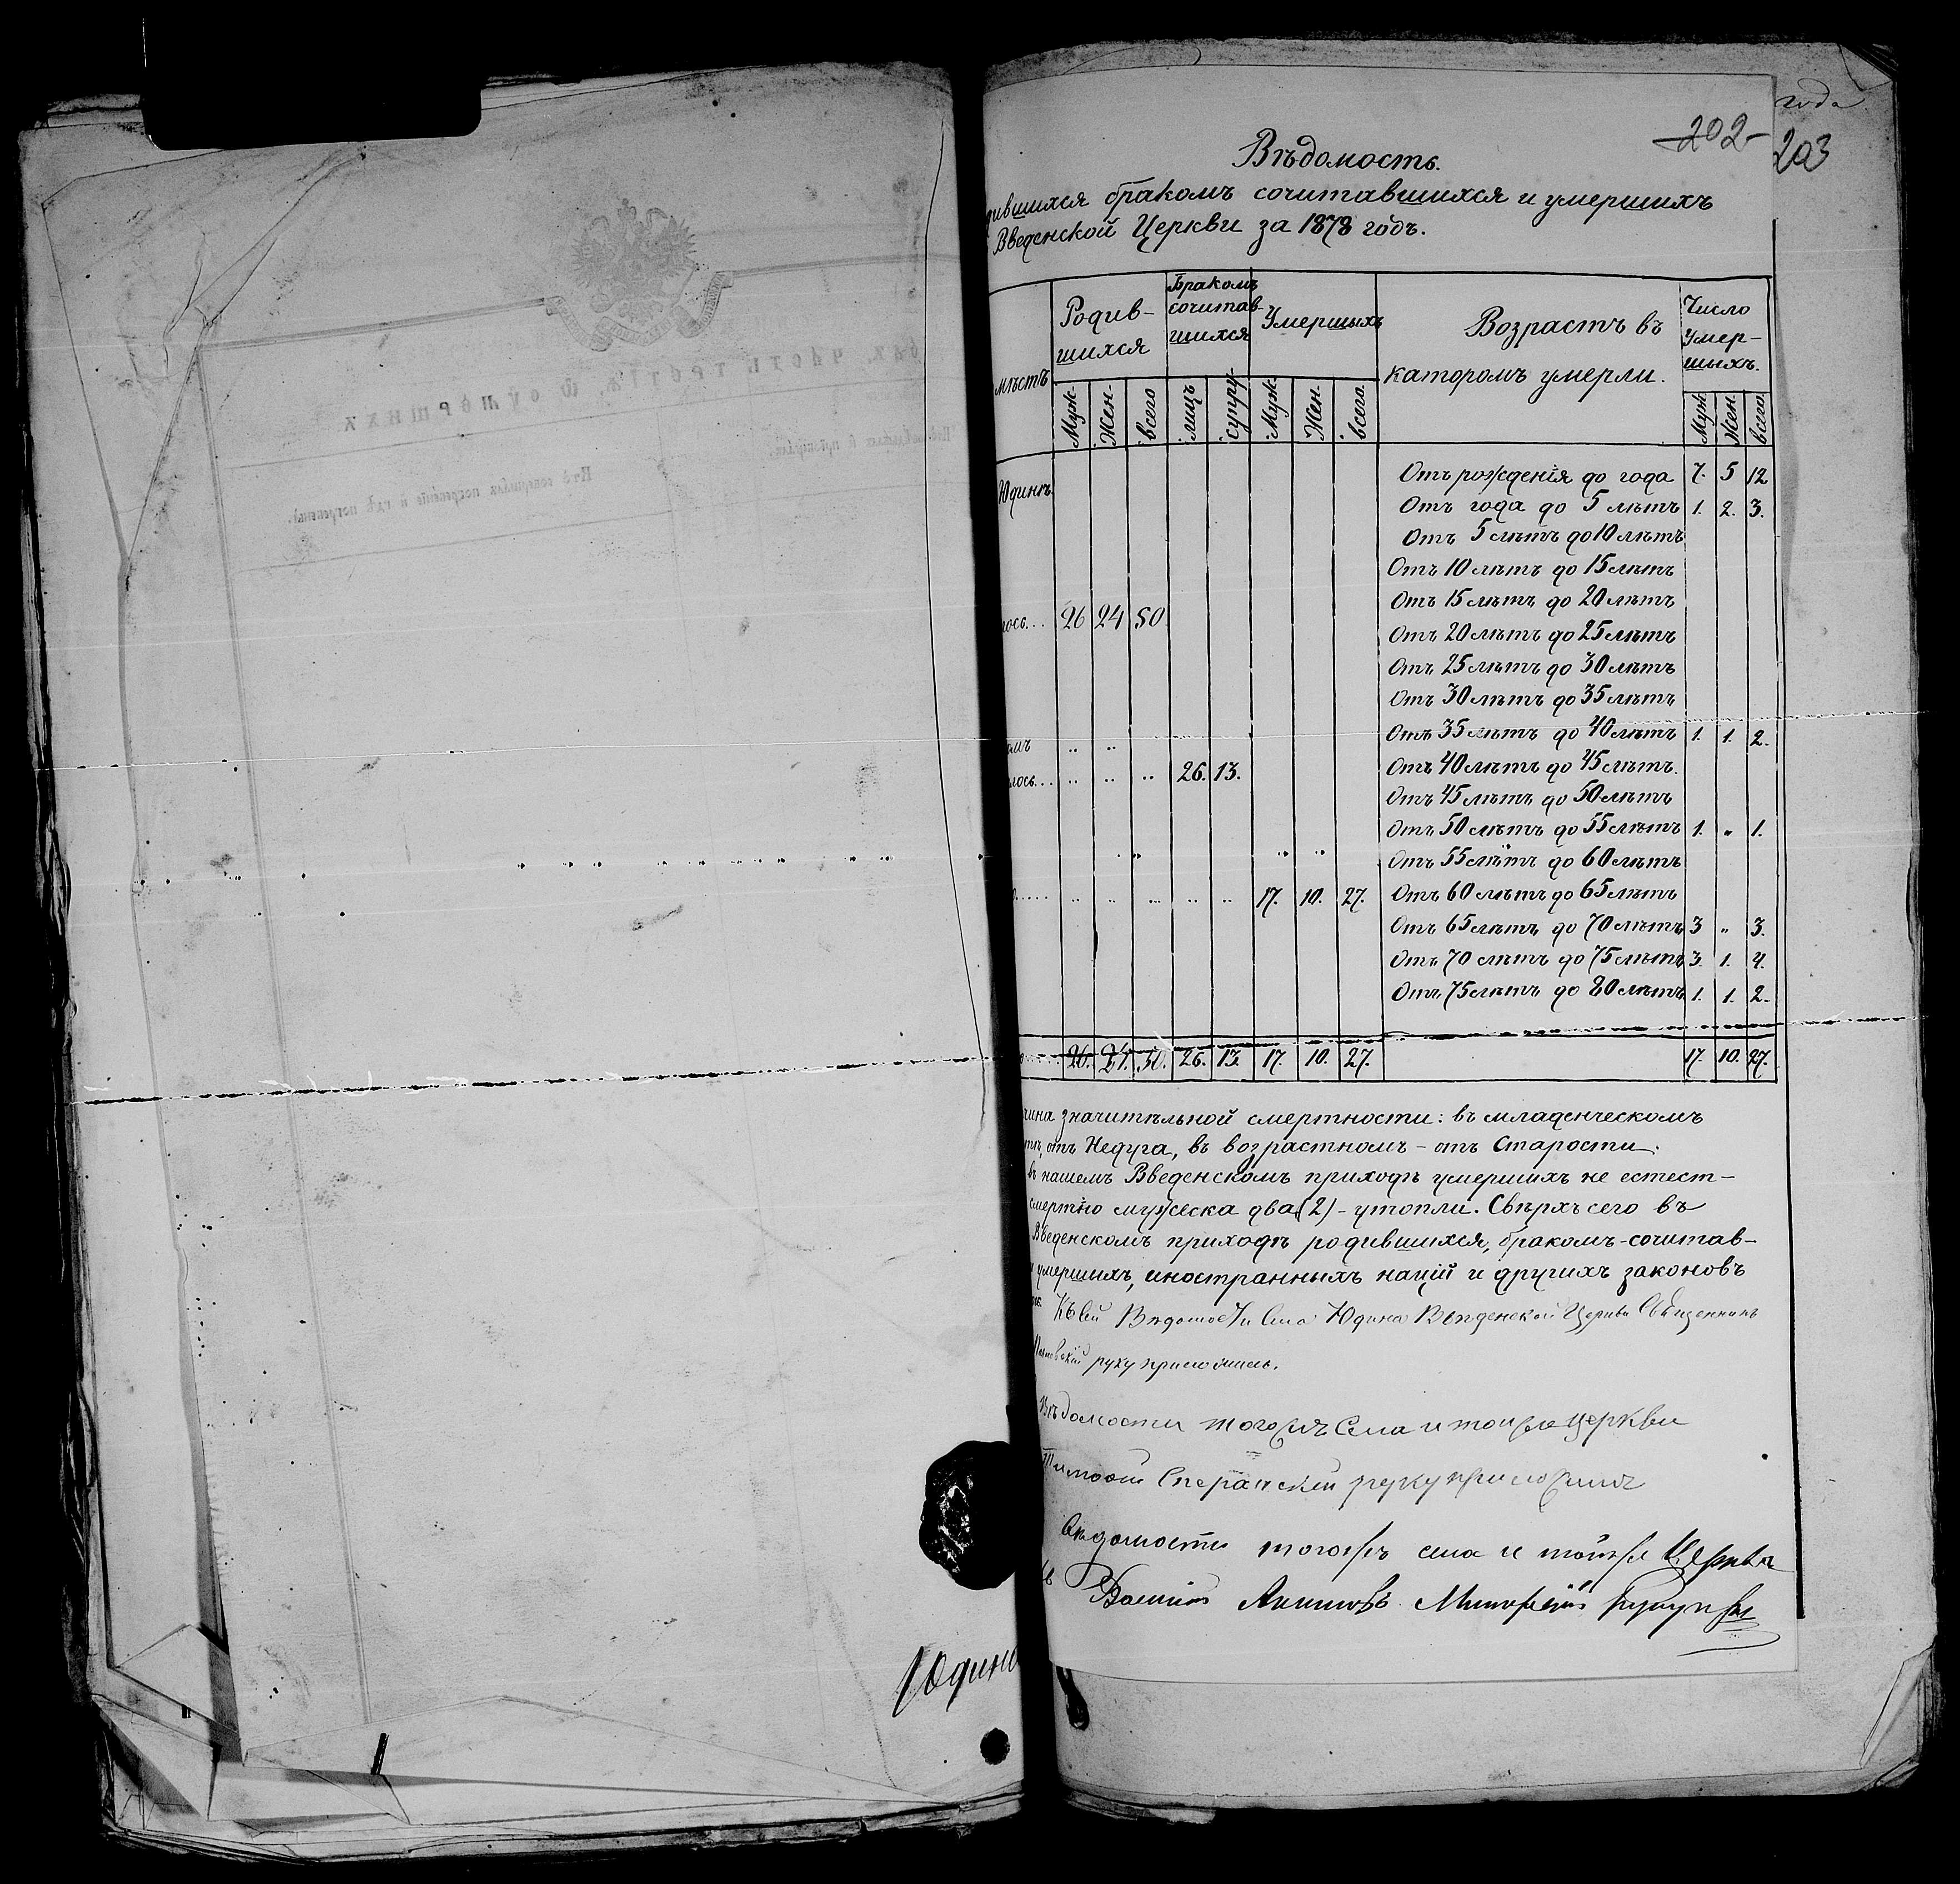 года
202
203
Вѣдомость.
дившихся бракомъ сочитавшихся и умершихъ
Введенской Церкви за 1878 годъ.
мѣстъ Родив- Бракомъ Умершыхъ Возрастъ въ Число
шихся сочитав- каторомъ умерли. умер-
шихся шыхъ.
Муж. Жен. всего лицъ супру. Муж. Жен. всего. Муж Жен. всего
Юдинъ Отъ рожденія до года 7. 5 12
Отъ года до 5 лѣтъ 1. 2. 3.
Отъ 5 лѣтъ до 10 лѣтъ
Отъ 10 лѣтъ до 15 лѣтъ
Отъ 15 лѣтъ до 20 лѣтъ
лось... 26 24 50
Отъ 20 лѣтъ до 25 лѣтъ
Отъ 25 лѣтъ до 30 лѣтъ
Отъ 30 лѣтъ до 35 лѣтъ
Отъ 35 лѣтъ до 40 лѣтъ 1. 1. 2.
лось... .. .. .. 26. 13. Отъ 40 лѣтъ до 45 лѣтъ.
Отъ 45 лѣтъ до 50 лѣтъ
Отъ 50 лѣтъ до 55 лѣтъ 1. „ 1.
Отъ 55 лѣтъ до 60 лѣтъ
.. .. ... .. .. 17. 10. 27. Отъ 60 лѣтъ до 65 лѣтъ
Отъ 65 лѣтъ до 70 лѣтъ 3 „ 3.
Отъ 70 лѣтъ до 75 лѣтъ 3. 1. 4.
Отъ 75 лѣтъ до 80 лѣтъ 1. 1. 2.
26. 24. 50. 26. 13. 17. 10. 27. 17. 10. 27.
чина значитѣльной смертности: въ младенческомъ
отъ Недуга, въ возрастномъ - отъ Старости.
въ нашемъ Введенскомъ приходѣ умершихъ не естест-
смертію мужеска два (2) - утопли. Свѣрхъ сего въ
Введенскомъ приходѣ родившихся, бракомъ-сочитав-
и умершихъ, иностранныхъ націй и другихъ законовъ
Къ сей Вѣдомости Села Юдина Введенской Церкви Священникъ
руку приложилъ.
Вѣдомости тогожъ Села и тойже церкви
Тимофей Сперанскій руку приложилъ
Вѣдомости тогожъ села и тойже Церкви
Юдина